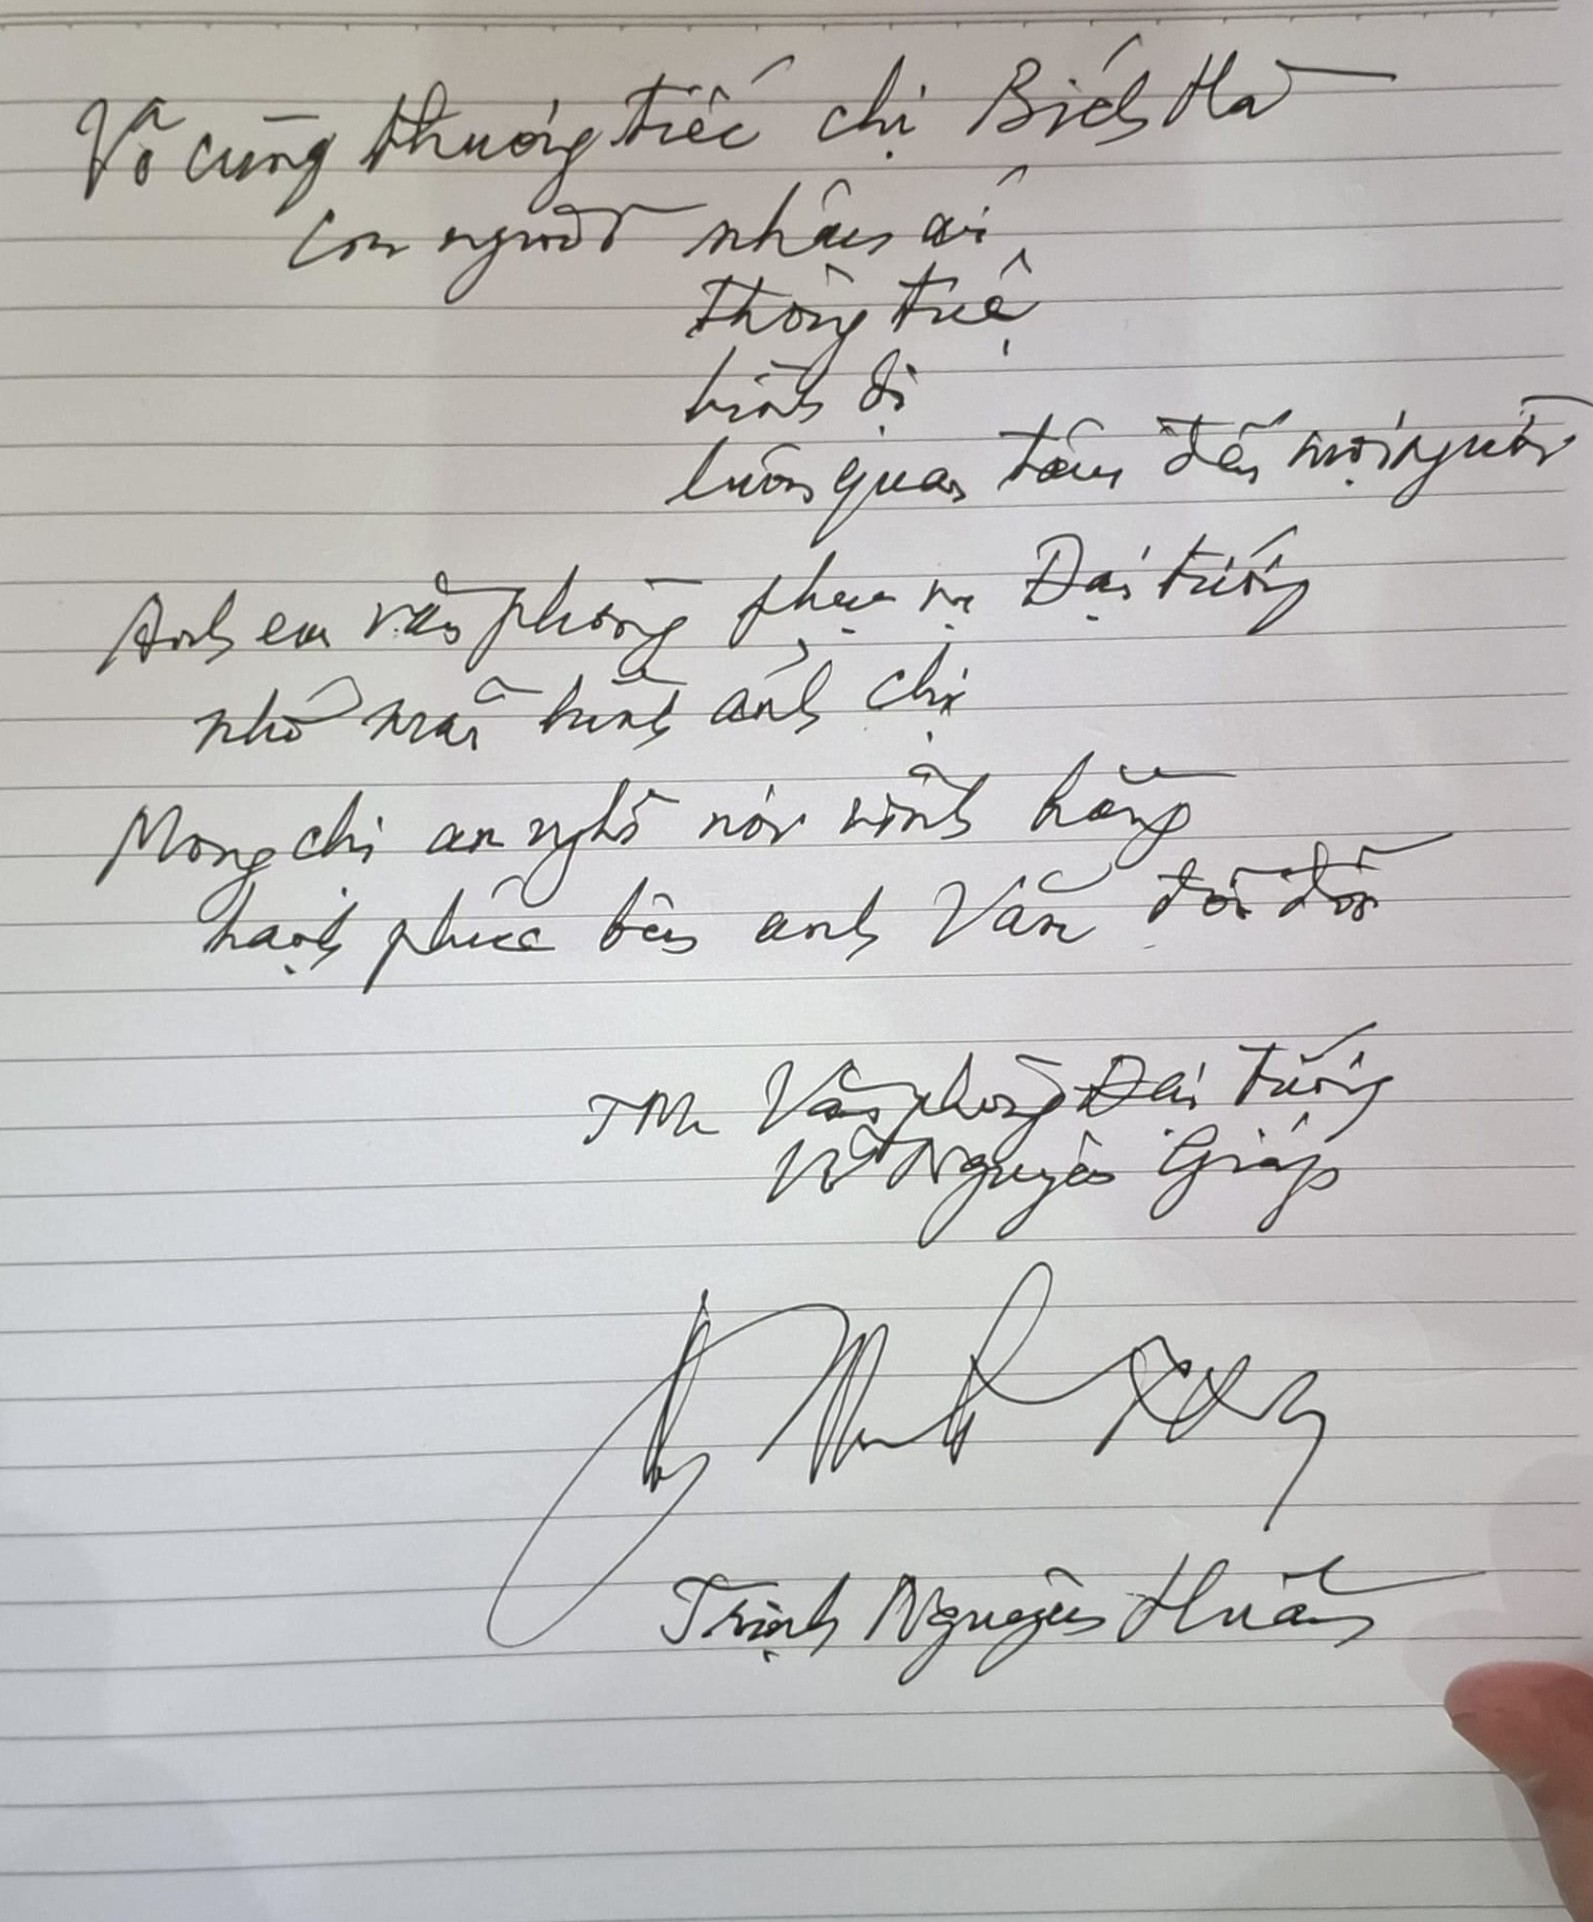 Vô cùng thương tiếc chị Bích Hà
con người nhân ái
thông tuệ
bình dị
luôn quan tâm đến mọi người
Anh em văn phòng phục vụ Đại tướng
nhớ mãi hình ảnh chị
Mong chị an nghỉ nơi vĩnh hằng
hạnh phúc bên anh Văn đời đời
TM Văn phòng Đại tướng
Võ Nguyên Giáp
Trịnh Nguyên Huân